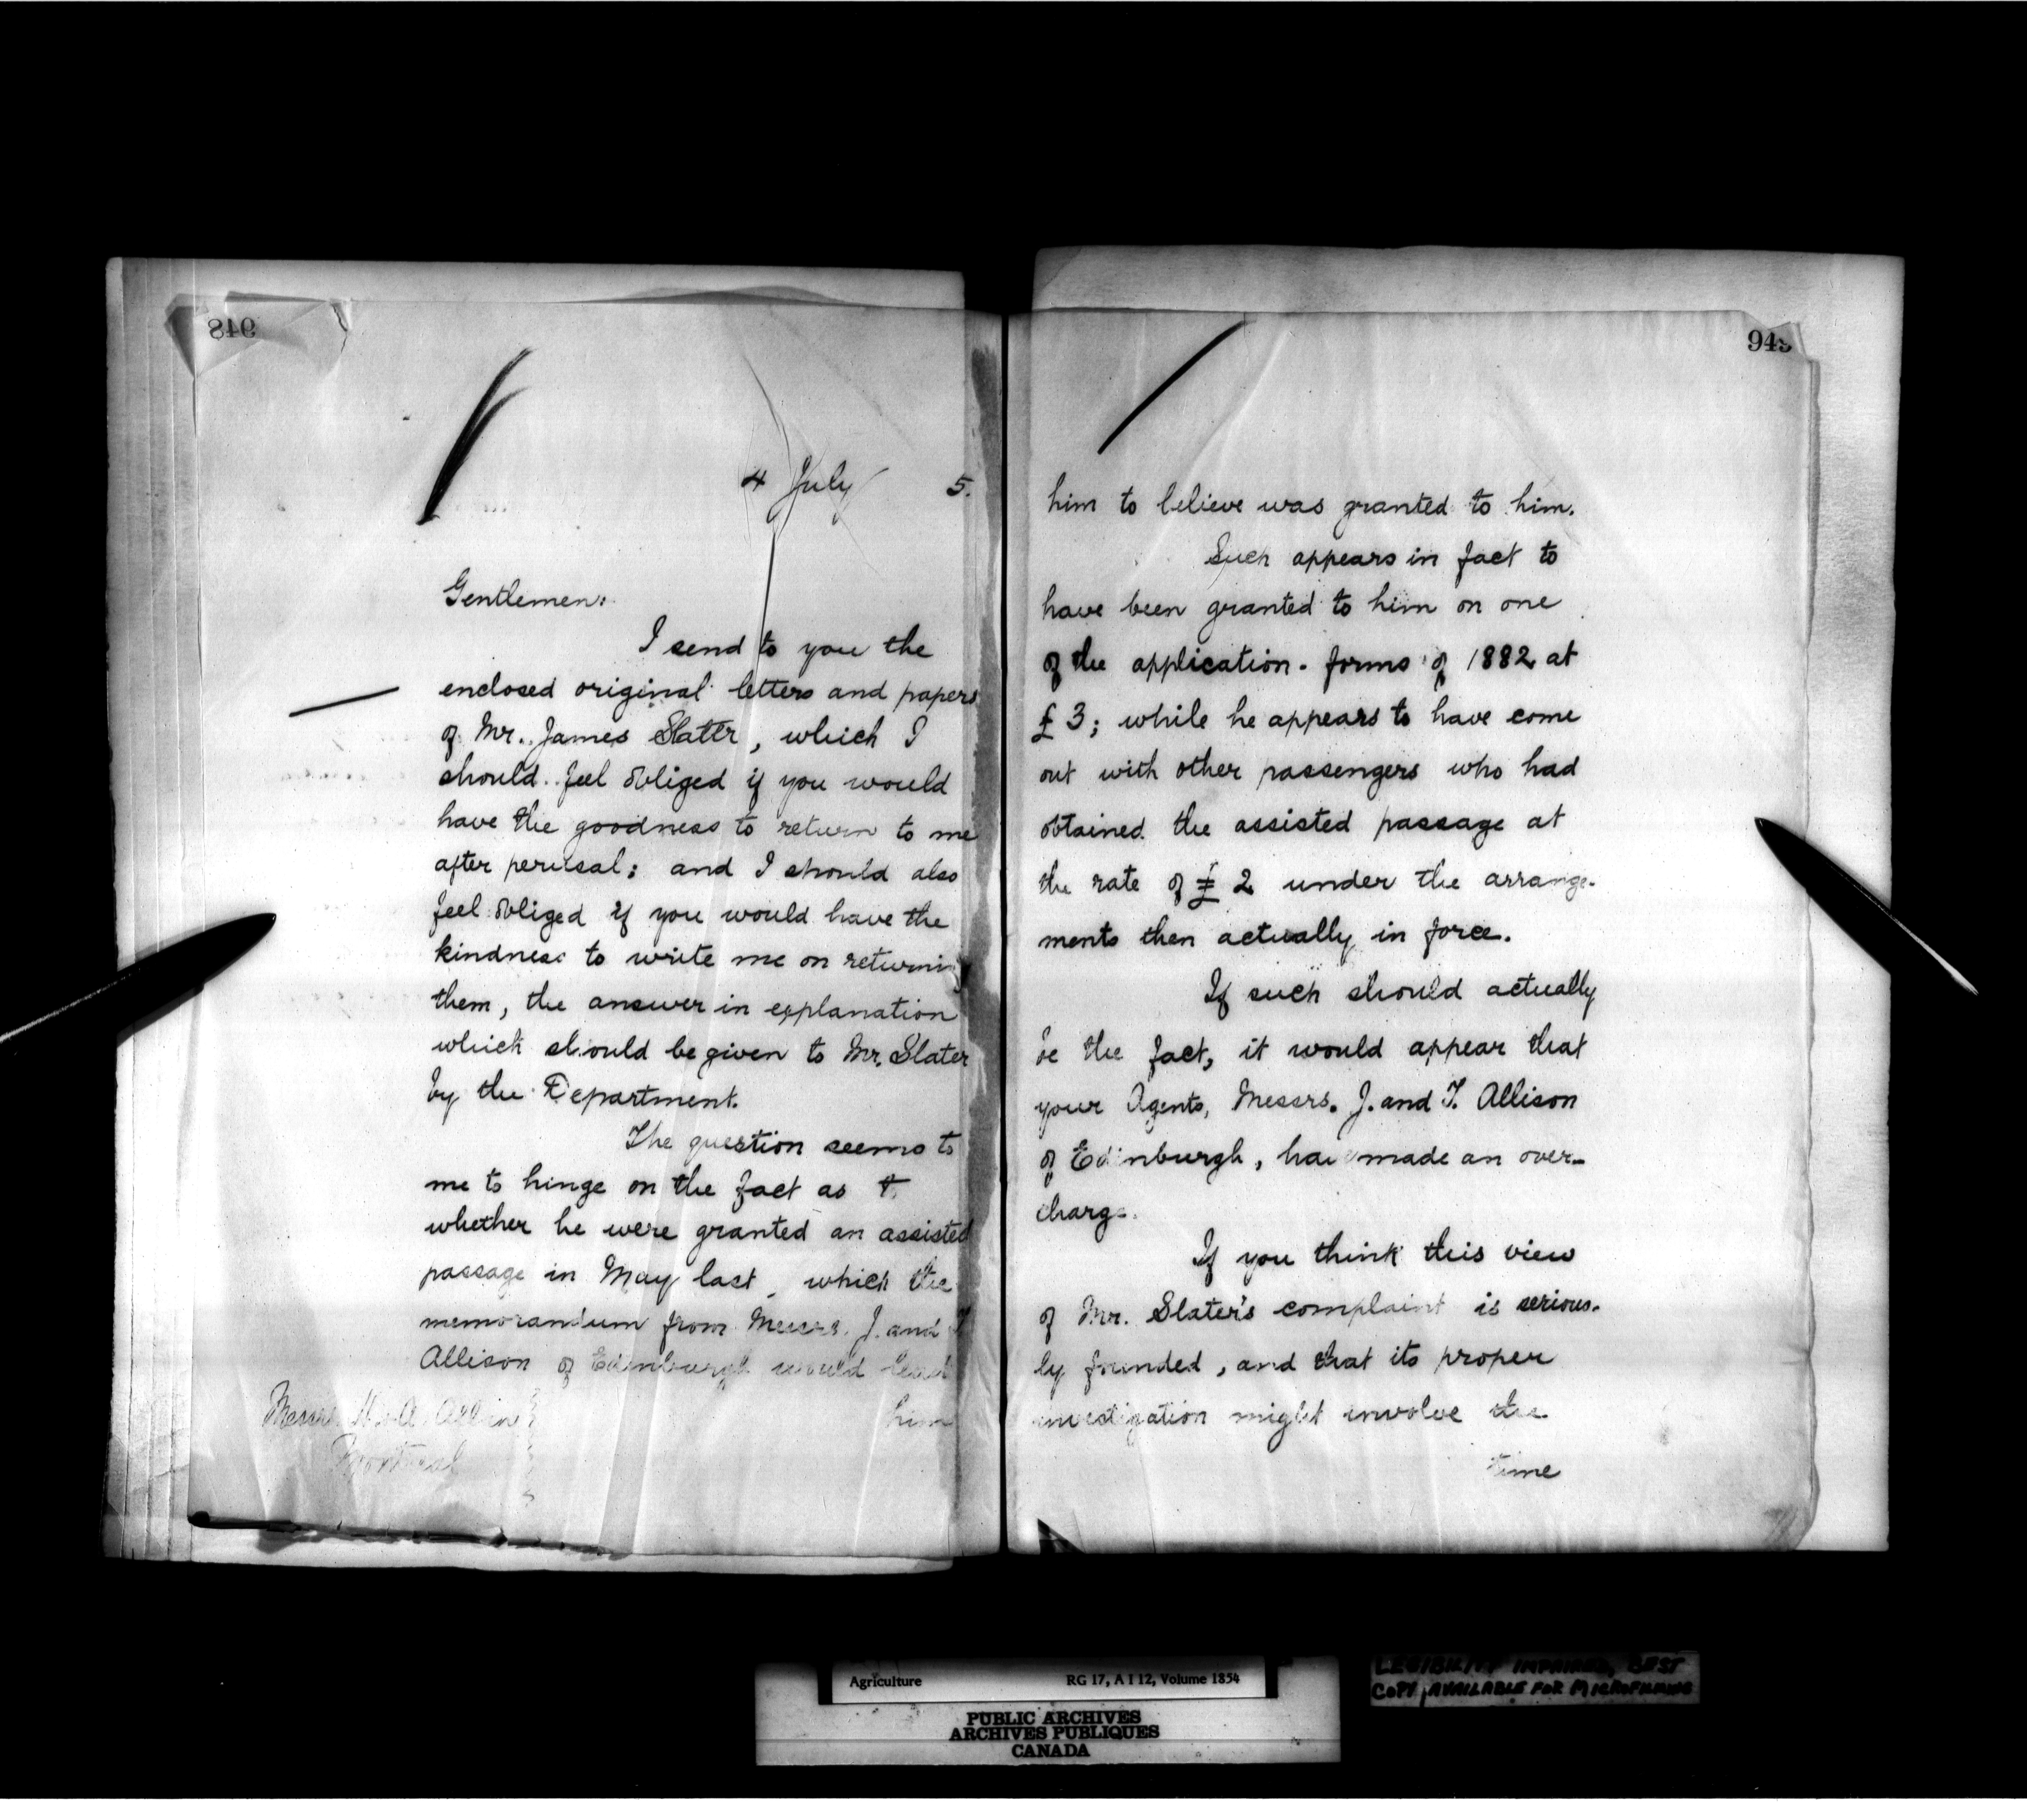 948
4 July 5.
Gentlemen:
I send to you the
enclosed original letters and papers
of Mr. James Slater, which I
should feel obliged if you would
have the goodness to return to me
after perusal; and I should also
feel obliged if you would have the
kindness to write me on returning
them, the answer in explanation
which should be given to Mr. Slater
by the Department.
The question seems to
me to hinge on the fact as to
whether he were granted an assisted
passage in May last, which the
memorandum from Messrs. J. and T
Allison of Edinburgh would lead
him
Messrs. H. & A. Allan
Montreal
949
him to believe was granted to him.
Such appears in fact to
have been granted to him on one
of the application-forms of 1882 at
£3; while he appears to have come
out with other passengers who had
obtained the assisted passage at
the rate of £2 under the arrange-
ments then actually in force.
If such should actually
be the fact, it would appear that
your Agents, Messrs. J. and T. Allison
of Edinburgh, have made an over-
charge.
If you think this view
of Mr. Slater's complaint is serious-
ly founded, and that its proper
investigation might involve the
time
Agriculture RG 17, A I 12, Volume 1854
PUBLIC ARCHIVES
ARCHIVES PUBLIQUES
CANADA
LEGIBILITY IMPAIRED, BEST
COPY AVAILABLE FOR MICROFILMING